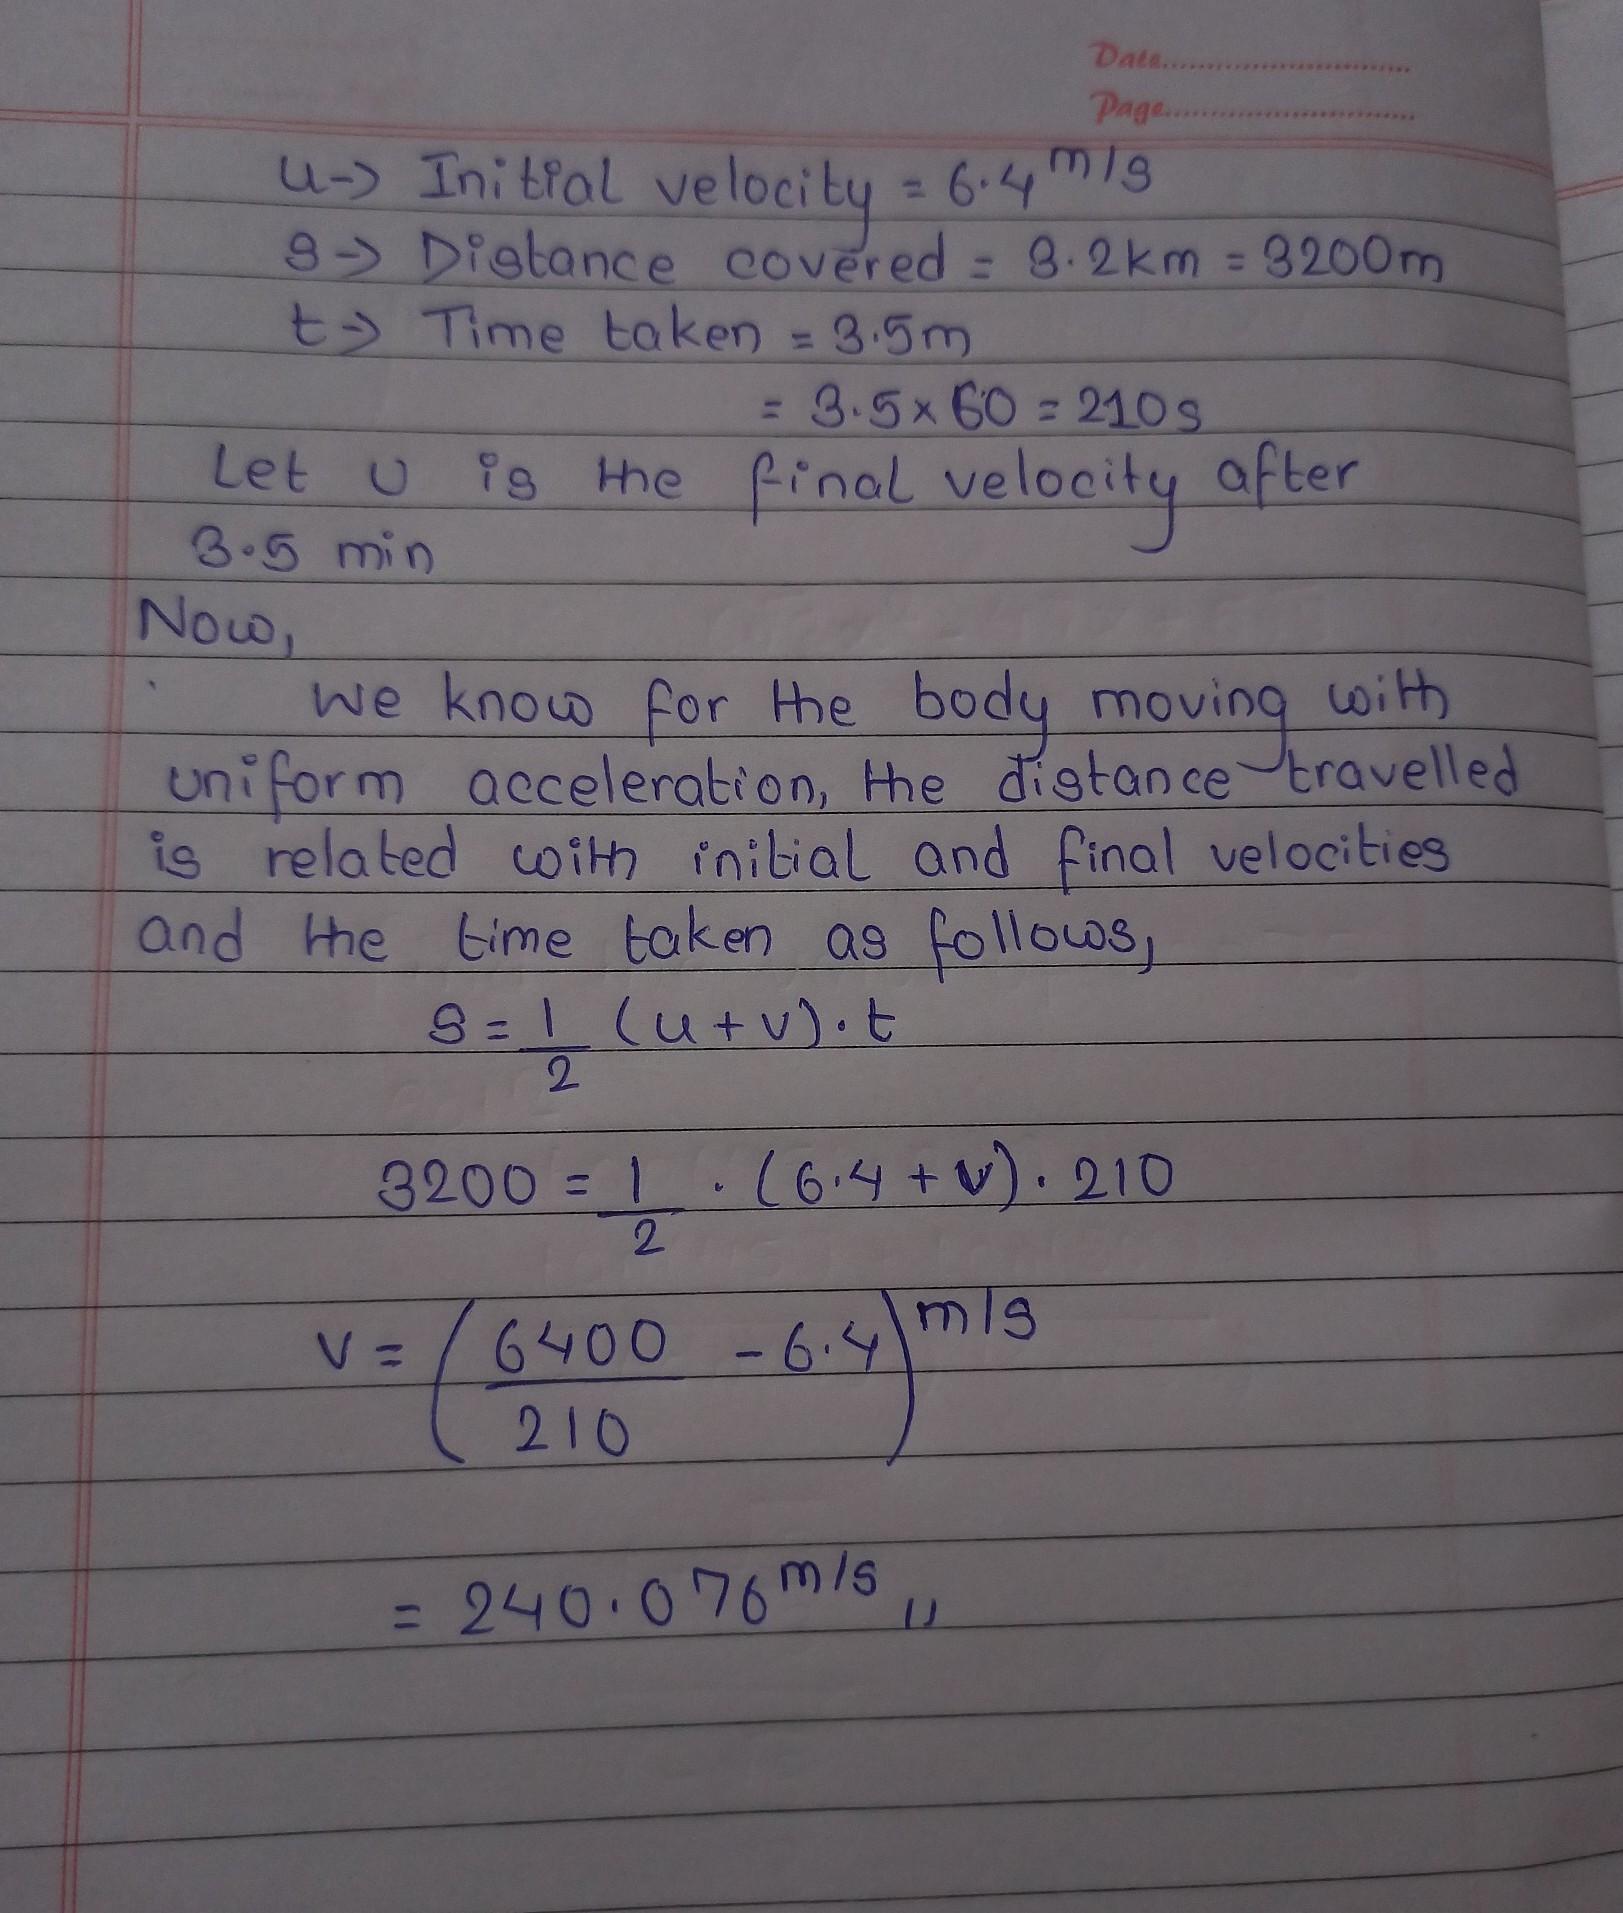 Date..............................
Page..............................
u-> Initial velocity = 6.4 m/s
s-> Distance covered = 3.2km = 3200m
t-> Time taken = 3.5m
= 3.5x60 = 210s
Let v is the final velocity after
3.5 min
Now,
we know for the body moving with
uniform acceleration, the distance travelled
is related with initial and final velocities
and the time taken as follows,
s = 1/2 (u+v).t
3200 = 1/2 . (6.4 + v). 210
v = (6400/210 - 6.4) m/s
= 240.076 m/s,,